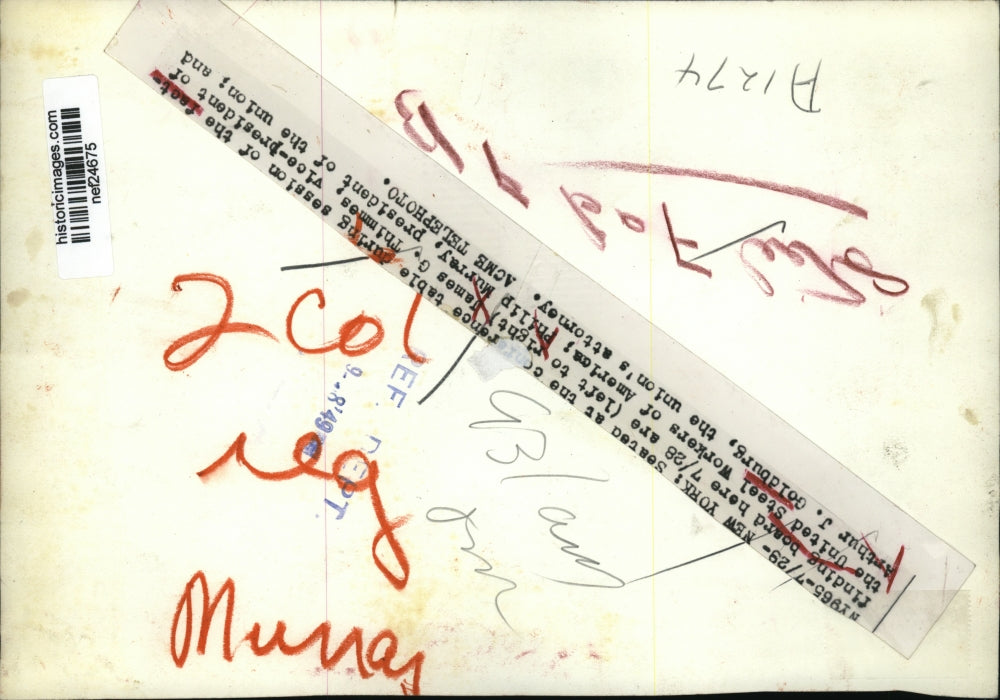 historicimages.com
nef24675
A1274
NY965-7/29- NEW YORK: Seated at the conference table during session of the fact-
finding board here 7/28 are (left to right) James G. Thimmes, vice-president of
the United Steel Workers of America; Phillip Murray, president of the union; and
Arthur J. Goldburg, the union's attorney. ACME TELEPHOTO.
2 col
reg
Murray
REF. DEPT